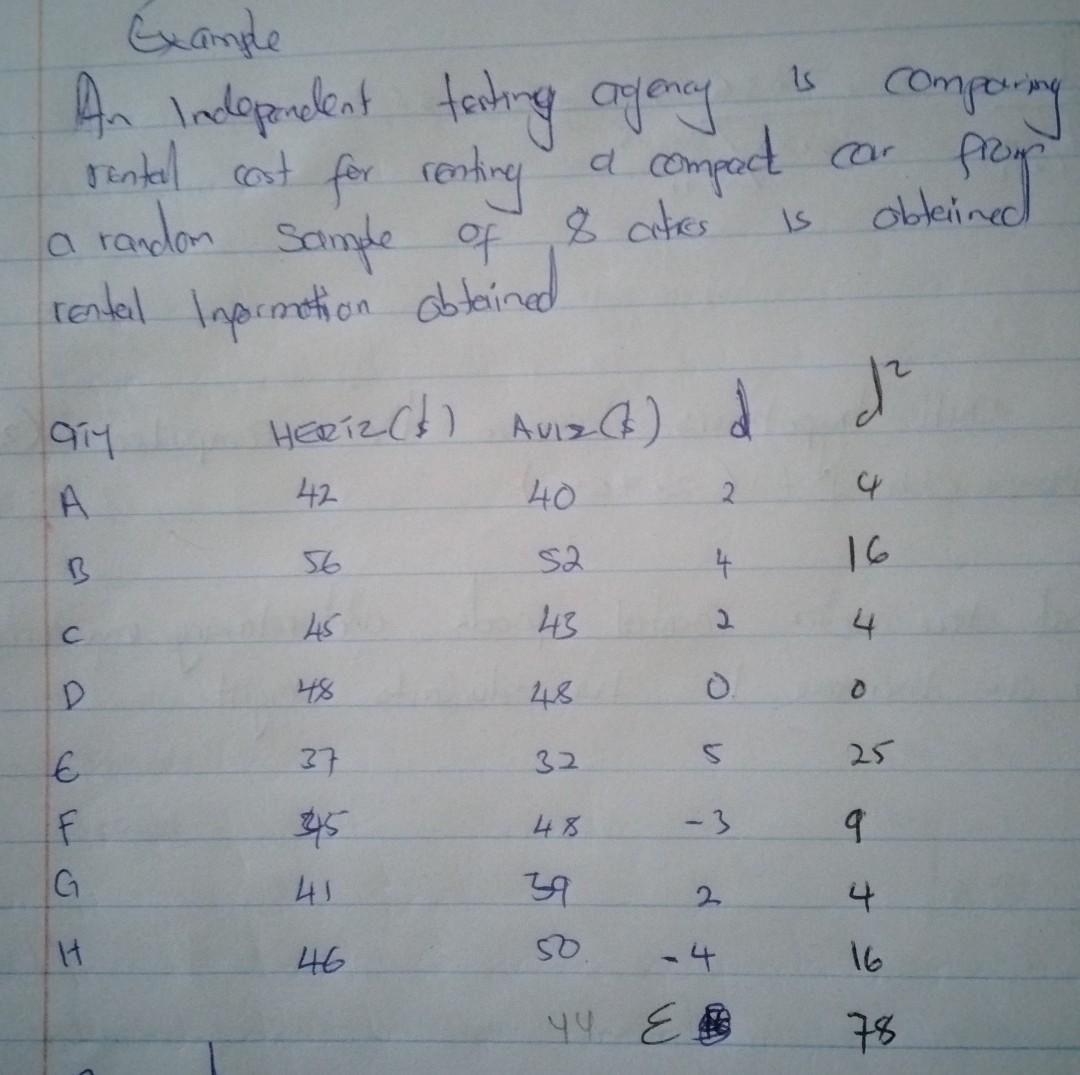 Example
An Independent testing agency is comparing
rental cost for renting a compact car from
a random sample of 8 cities is obteined
rental Information obtained
City HERIZ($) AVIZ($) d d²
A 42 40 2 4
B 56 52 4 16
C 45 43 2 4
D 48 48 0 0
E 37 32 5 25
F 45 48 -3 9
G 41 39 2 4
H 46 50 -4 16
44 Σ 78